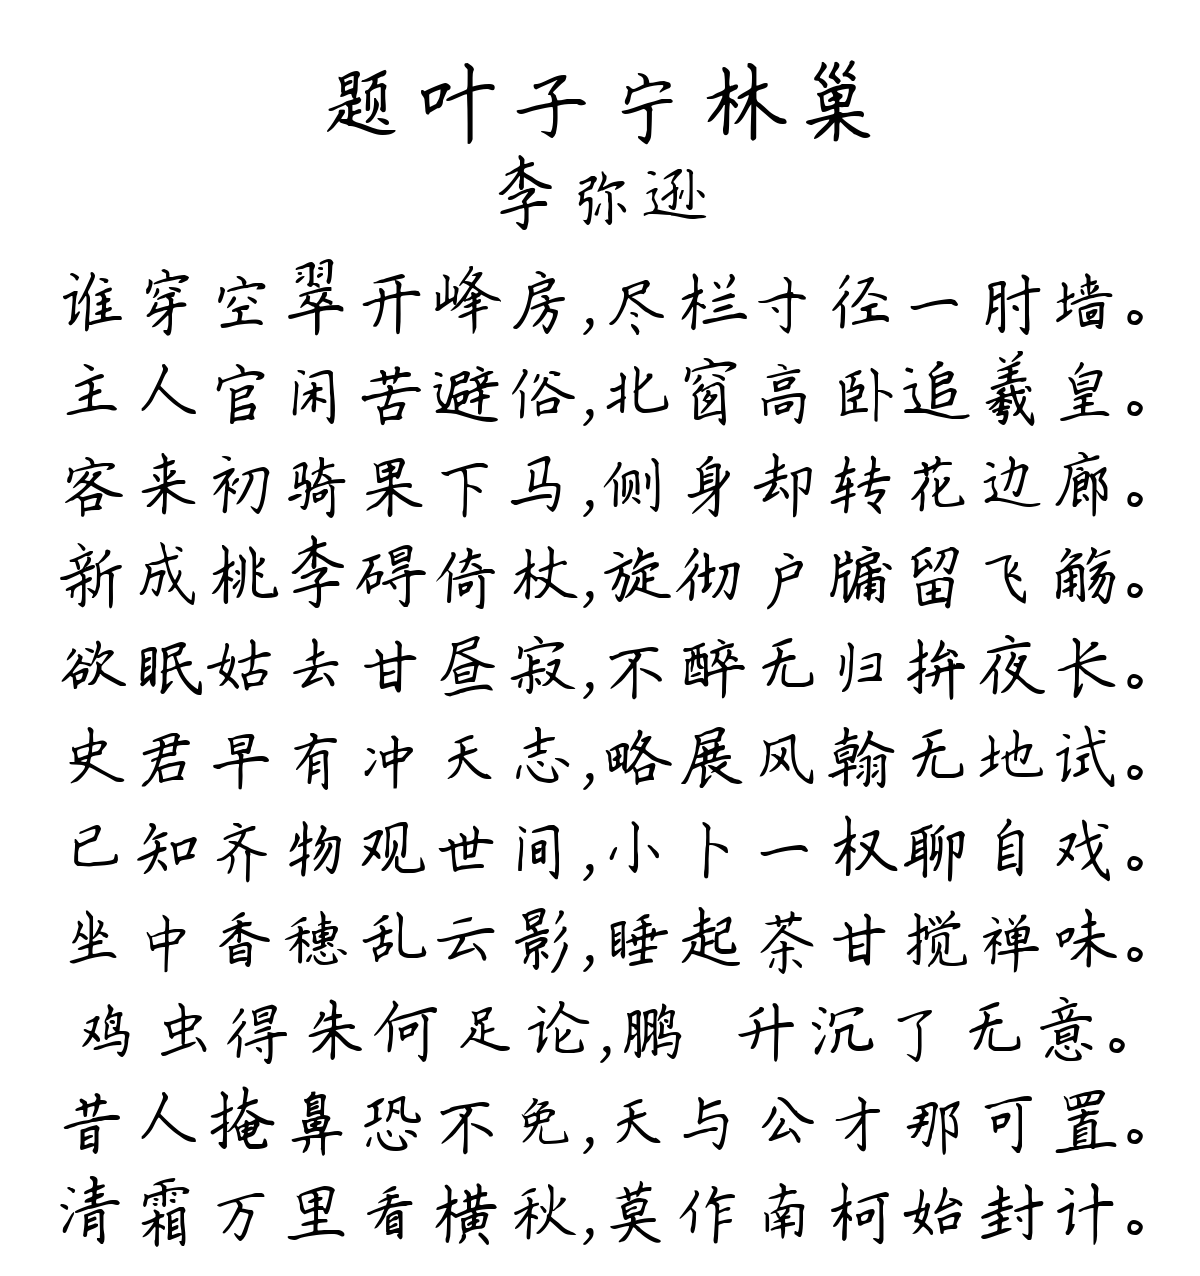 题叶子宁林巢
李弥逊
谁穿空翠开峰房,尽栏寸径一肘墙。
主人官闲苦避俗,北窗高卧追羲皇。
客来初骑果下马,侧身却转花边廊。
新成桃李碍倚杖,旋彻户牖留飞觞。
欲眠姑去甘昼寂,不醉无归拚夜长。
史君早有冲天志,略展风翰无地试。
已知齐物观世间,小卜一权聊自戏。
坐中香穗乱云影,睡起茶甘搅禅味。
鸡虫得朱何足论,鹏 升沉了无意。
昔人掩鼻恐不免,天与公才那可置。
清霜万里看横秋,莫作南柯始封计。